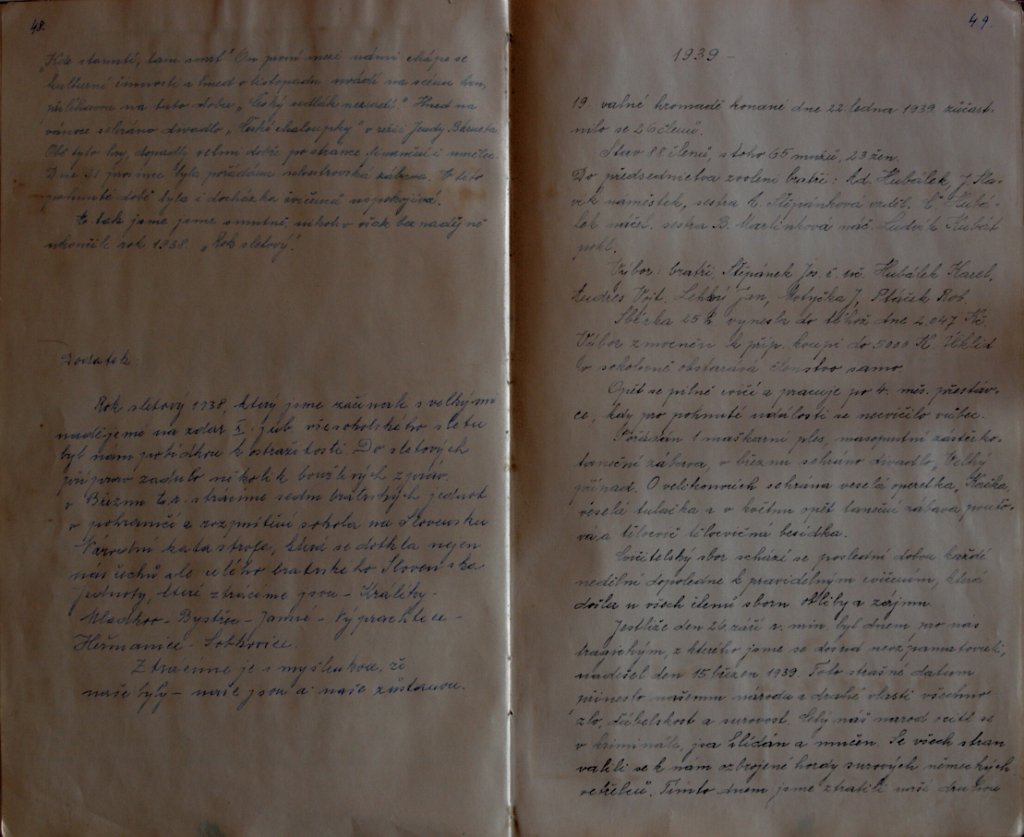 48.
„Kde stanutí, tam smrt" On první mezi námi chápe se
kulturní činnosti a hned v listopadu uvádí na scénu hru,
přiléhavou na tuto dobu „Český sedlák nezradí!" Hned na
vánoce sehráno divadlo „České chaloupky" v režii Jendy
Obě tyto hry, dopadly velmi dobře po stránce finanční i umělec.
Dne 31 prosince byla pořádána silvestrovská zábava. V této
pohnuté době byla i docházka cvičenců uspokojivá.
A tak jsme jsme smutně, nikoliv však beznadějně
ukončili rok 1938. „Rok sletový".
Dodatek:
Rok sletový 1938, který jsme začínali s velkými
nadějemi na zdar X. jub. všesokolského sletu
byl nám pobídkou k ostražitosti. Do sletových
příprav zadulo několik bouřlivých zpráv.
V Březnu t.r. ztrácíme sedm bratrských jednot
v pohraničí a rozpuštění sokola na Slovensku
Národní katastrofa, která se dotkla nejen
nás čechů ale celého bratrského Slovenska
Jednoty, které ztrácíme jsou - Králíky -
Mladkov - Bystřec - Jamné - Výprachtice -
Heřmanice - Sobkovice.
Ztrácíme je s myšlenkou, že
naše byly - naše jsou a naše zůstanou.
49.
1939 -
19. valné hromadě konané dne 22. ledna 1939 zúčast-
nilo se 26 členů.
Stav 88 členů, z toho 65 mužů, 23 žen.
Do předsednictva zvoleni bratři: Ad. Hubálek, J. Sla-
vík náměstek, sestra E. Štěpánková vzděl. Č. Hubá-
lek náčel. sestra B. Martinková náč. Ludvík Kubát
pokl.
Výbor: bratři Štěpánek Jos. č. vč. Hubálek Karel,
Endres Vojt. Lehký Jan, Motyčka J, Ptáček Rob.
Sbírka 25 h vynesla do téhož dne 2.047 Kč.
Výbor zmocněn k příp. koupi do 5000 K. Úklid
v sokolovně obstarává členstvo samo.
Opět se pilně cvičí a pracuje po 4. měs. přestáv-
ce, kdy pro pohnuté události se necvičilo vůbec.
Pořádán 1 maškarní ples, masopustní zástěrko-
taneční zábava, v březnu sehráno divadlo „Velký
případ". O velikonocích sehrána veselá opereta „Kačka,
veselá tulačka" a v květnu opět taneční zábava pouťo-
vá a tělocvičná besídka.
Cvičitelský sbor schází se poslední dobou každé
nedělní dopoledne k pravidelným cvičením, která
došla u všech členů sboru obliby a zájmu.
Jestliže den 26 září r. min. byl dnem, pro nás
tragickým, z kterého jsme se dosud nevzpamatovali,
nadešel den 15 březen 1939. Toto strašné datum
přineslo našemu národu a druhé vlasti všechno
zlo, ďábelskost a surovost. Celý náš národ ocitl se
v kriminále, jsa hlídán a mučen. Se všech stran
valili se k nám ozbrojené hordy surových německých
vetřelců. Tímto dnem jsme ztratili naši druhou